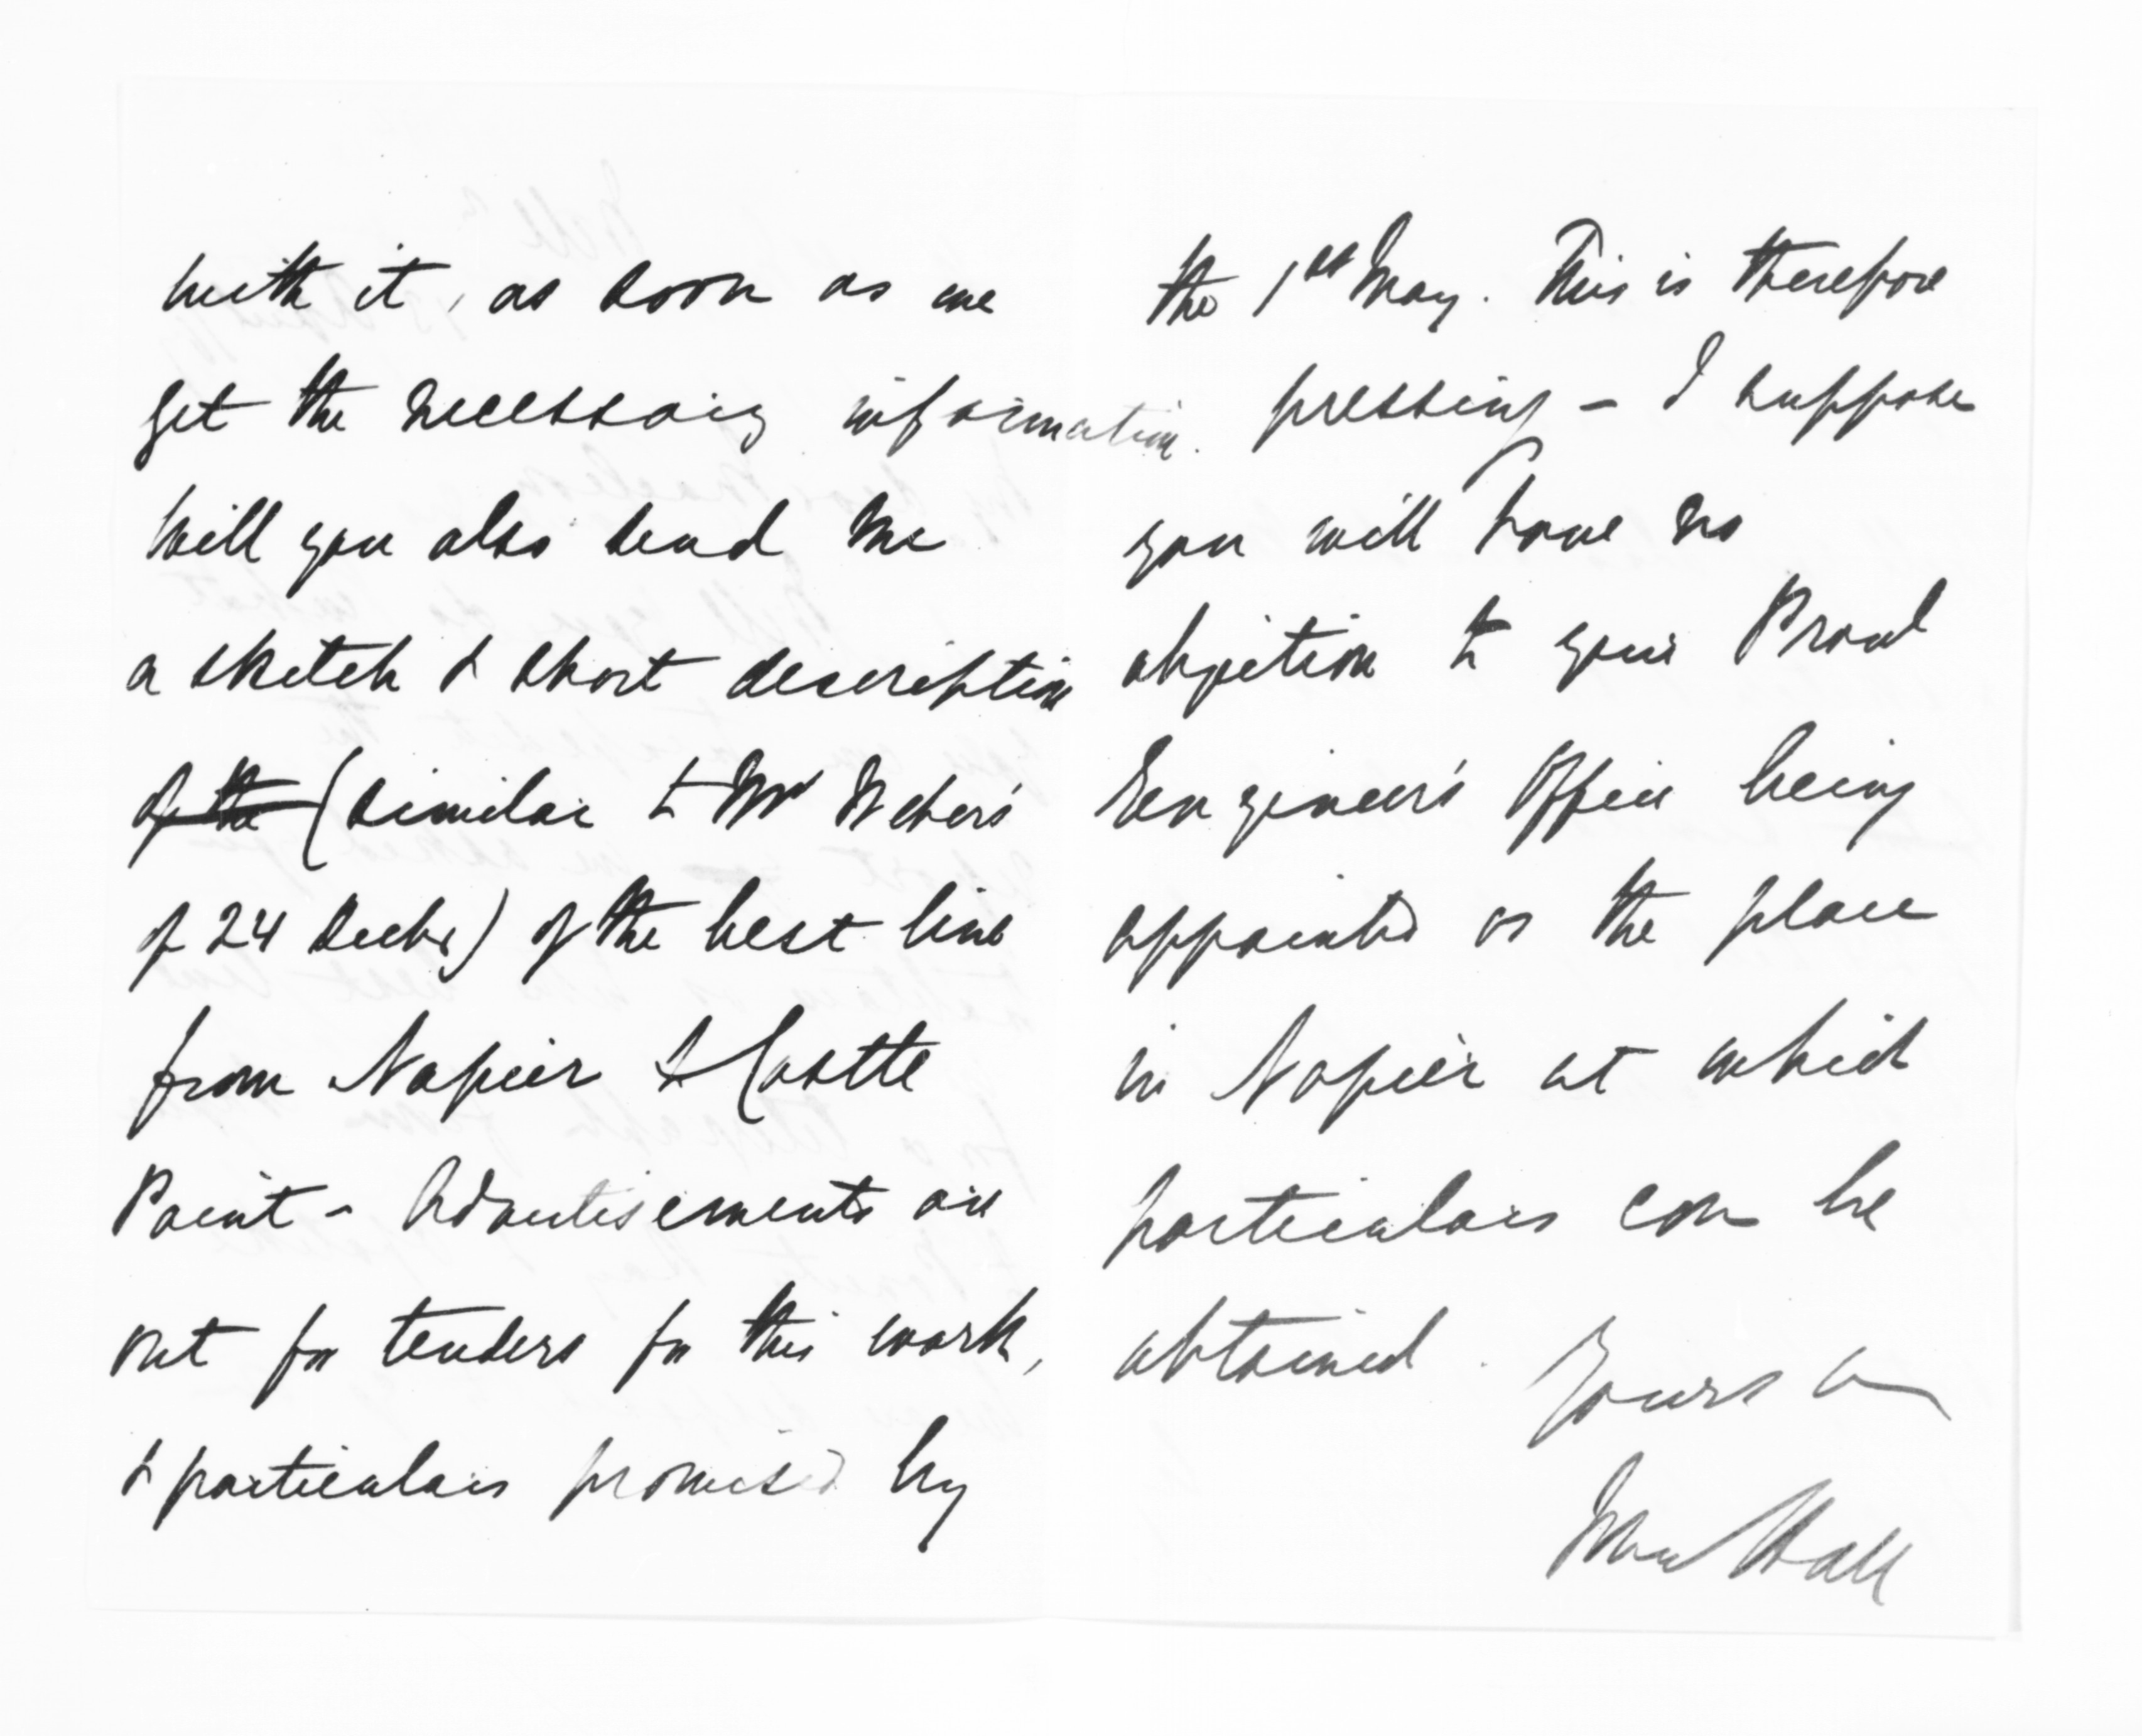 with it, as soon as we
get the necessary information.
Will you also send me
a sketch & short description
of the (similar to Mr Weber's
of 24 Decbr) of the best line
from Napier to Castle
Point - Advertisements are
out for tenders for this work,
& particulars promised by
the 1st May. This is therefore
pressing - I suppose
you will have no
objection to your Provl
Engineer's Office being
appointed as the place
in Napier at which
particulars can be
obtained. Yours
John Hall